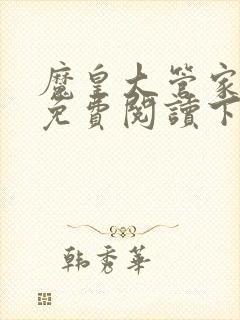 魔皇大管家
免費閱讀下
韩秀華